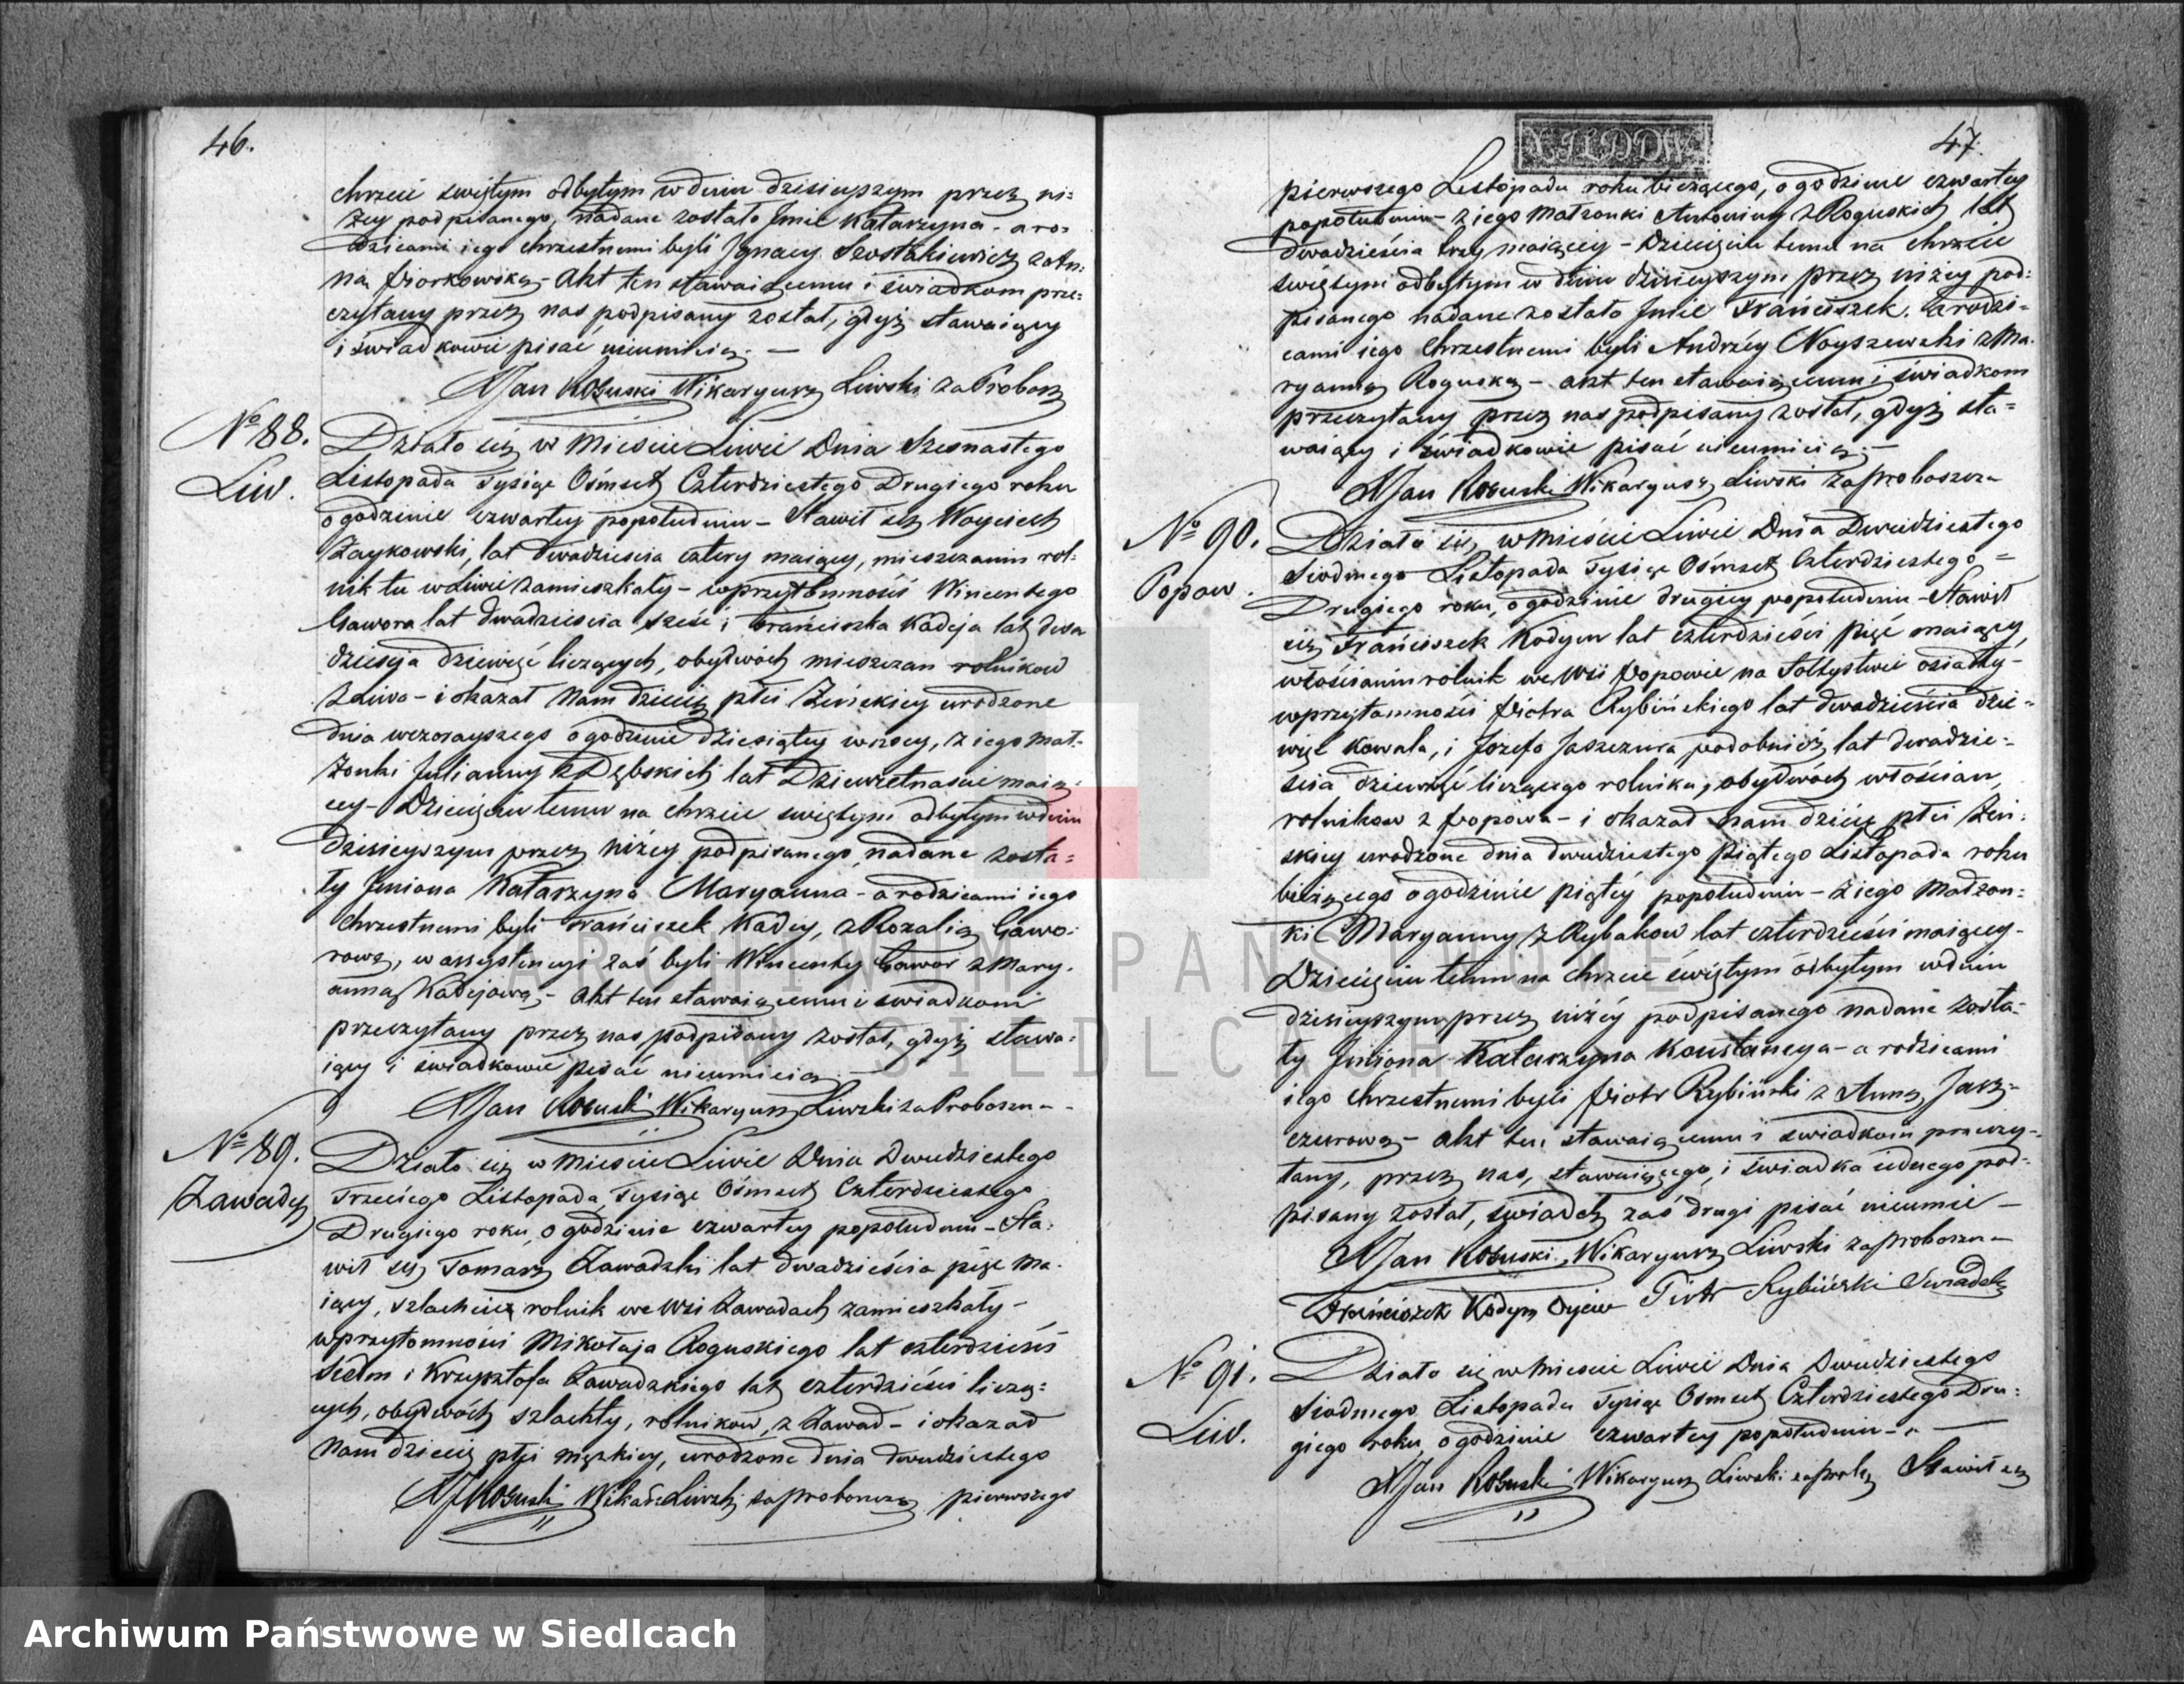 46.
chrzcie świętym odbytym w dniu dzisieyszym przez ni=
żey podpisanego, nadane zostało Jmie Katarzyna - a ro=
dzicami iego chrzestnemi byli Jgnacy Szostakiewicz z An=
ną Piorkowską - Akt ten stawaiącemu i świadkom prze=
czytany przez nas podpisany został, gdyż stawaiący
i świadkowie pisać nieumieią. —
X Jan Roguski Wikaryusz Liwski za Probosz
No 88.
Liw.
Działo się w Mieście Liwie Dnia Szesnastego
Listopada Tysiąc Ośmset Czterdziestego Drugiego roku
o godzinie czwartey popołudniu - Stawił się Woyciech
Zaykowski, lat dwadzieścia cztery maiący, mieszczanin rol=
nik tu w Liwie zamieszkały - w przytomności Wincentego
Gawora lat dwadzieścia sześć i Franciszka Kadeja lat dwa
dzieścia dziewięć liczących, obydwóch mieszczan rolnikow
z Liwa - i okazał Nam dziecię płci Żeńskiey urodzone
dnia wczorayszego o godzinie dziesiątey w nocy, z iego Mał=
żonki Julianny z Dębskich lat Dziewiętnaście maią=
cey - Dziecięciu temu na chrzcie świętym odbytym w dniu
dzisieyszym przez niżéy podpisanego nadane zosta=
ły Jmiona Katarzyna Maryanna - a rodzicami iego
Chrzestnemi byli Franciszek Kadey, z Rozalią Gawo=
rową, w assystencyi zaś byli Wincenty Gawor z Mary=
anną Kadejową, - Akt ten stawaiącemu i świadkom
przeczytany przez nas podpisany został, gdyż stawa=
iący i świadkowie pisać nieumieią. —
X Jan Roguski Wikaryusz Liwski za Probosza -
No 89.
Zawady
Działo się w Mieście Liwie Dnia Dwudziestego
Trzeciego Listopada Tysiąc Ośmset Czterdziestego
Drugiego roku, o godzinie czwartey popołudniu - Sta=
wił się Tomasz Zawadzki lat dwadzieścia pięć ma=
iący, szlachcic rolnik we wsi Zawadach zamieszkały -
w przytomności Mikołaja Roguskiego lat czterdzieści
siedm i Krzysztofa Zawadzkiego lat czterdzieści liczą=
cych, obydwóch szlachty, rolników, z Zawad - i okazał
Nam dziecię płci męzkiey, urodzone dnia dwudziestego
X J Roguski Wikar Liwski za proboszcza pierwszego
47.
pierwszego Listopada roku bieżącego, o godzinie czwartey
popołudniu - z iego Małżonki Antoniny z Roguskich lat
dwadzieścia trzy maiącey - Dziecięciu temu na chrzcie
świętym odbytym w dniu dzisieyszym przez niżéy pod=
pisanego nadane zostało Jmie Franciszek, a rodzi=
cami iego Chrzestnemi byli Andrzéy Noyszewski z Ma=
ryanną Roguską - akt ten stawaiącemu i świadkom
przeczytany przez nas podpisany został, gdyż sta=
waiący i świadkowie pisać nieumieią. —
X Jan Roguski Wikaryusz Liwski za proboszcza
No 90.
Popow.
Działo się w Mieście Liwie Dnia Dwudziestego
Siodmego Listopada Tysiąc Ośmset Czterdziestego =
Drugiego roku, o godzinie drugiey popołudniu - Stawił
się Franciszek Kodym lat czterdzieści pięć maiący,
włościanin rolnik we Wsi Popowie na Sołtystwie osiadły -
w przytomności Piotra Rybińskiego lat dwadzieścia dzie=
więć kowala, i Józefa Jaszczura podobnież lat dwadzie=
ścia dziewięć liczącego rolnika, obydwóch włościan
rolnikow z Popowa - i okazał Nam dziécię płci Żeń=
skiey urodzone dnia dwudziestego piątego Listopada roku
bieżącego o godzinie piątéy popołudniu - z iego Małżon=
ki Maryanny z Rybakow lat czterdzieści maiącey -
Dziecięciu temu na chrzcie świętym odbytym w dniu
dzisieyszym przez niżéy podpisanego nadane zosta=
ły Jmiona Katarzyna Konstancya - a rodzicami
iego chrzestnemi byli Piotr Rybiński z Anną Jasz=
czurową - Akt ten stawaiącemu i świadkom przeczy=
tany, przez nas, stawaiącego, i świadka iednego pod=
pisany został, świadek zaś drugi pisać nieumie —
X Jan Roguski, Wikaryusz Liwski za probosza -
Franciszek Kodym Oyciec Piotr Rybiński Swiadek
No 91.
Liw.
Działo się w Mieście Liwie Dnia Dwudziestego
Siodmego Listopada Tysiąc Ośmset Czterdziestego Dru=
giego roku, o godzinie czwartey popołudniu - „ —
X Jan Roguski Wikaryusz Liwski za probosz Stawił się
ARCHIWUM PAŃSTWOWE
W SIEDLCACH
Archiwum Państwowe w Siedlcach